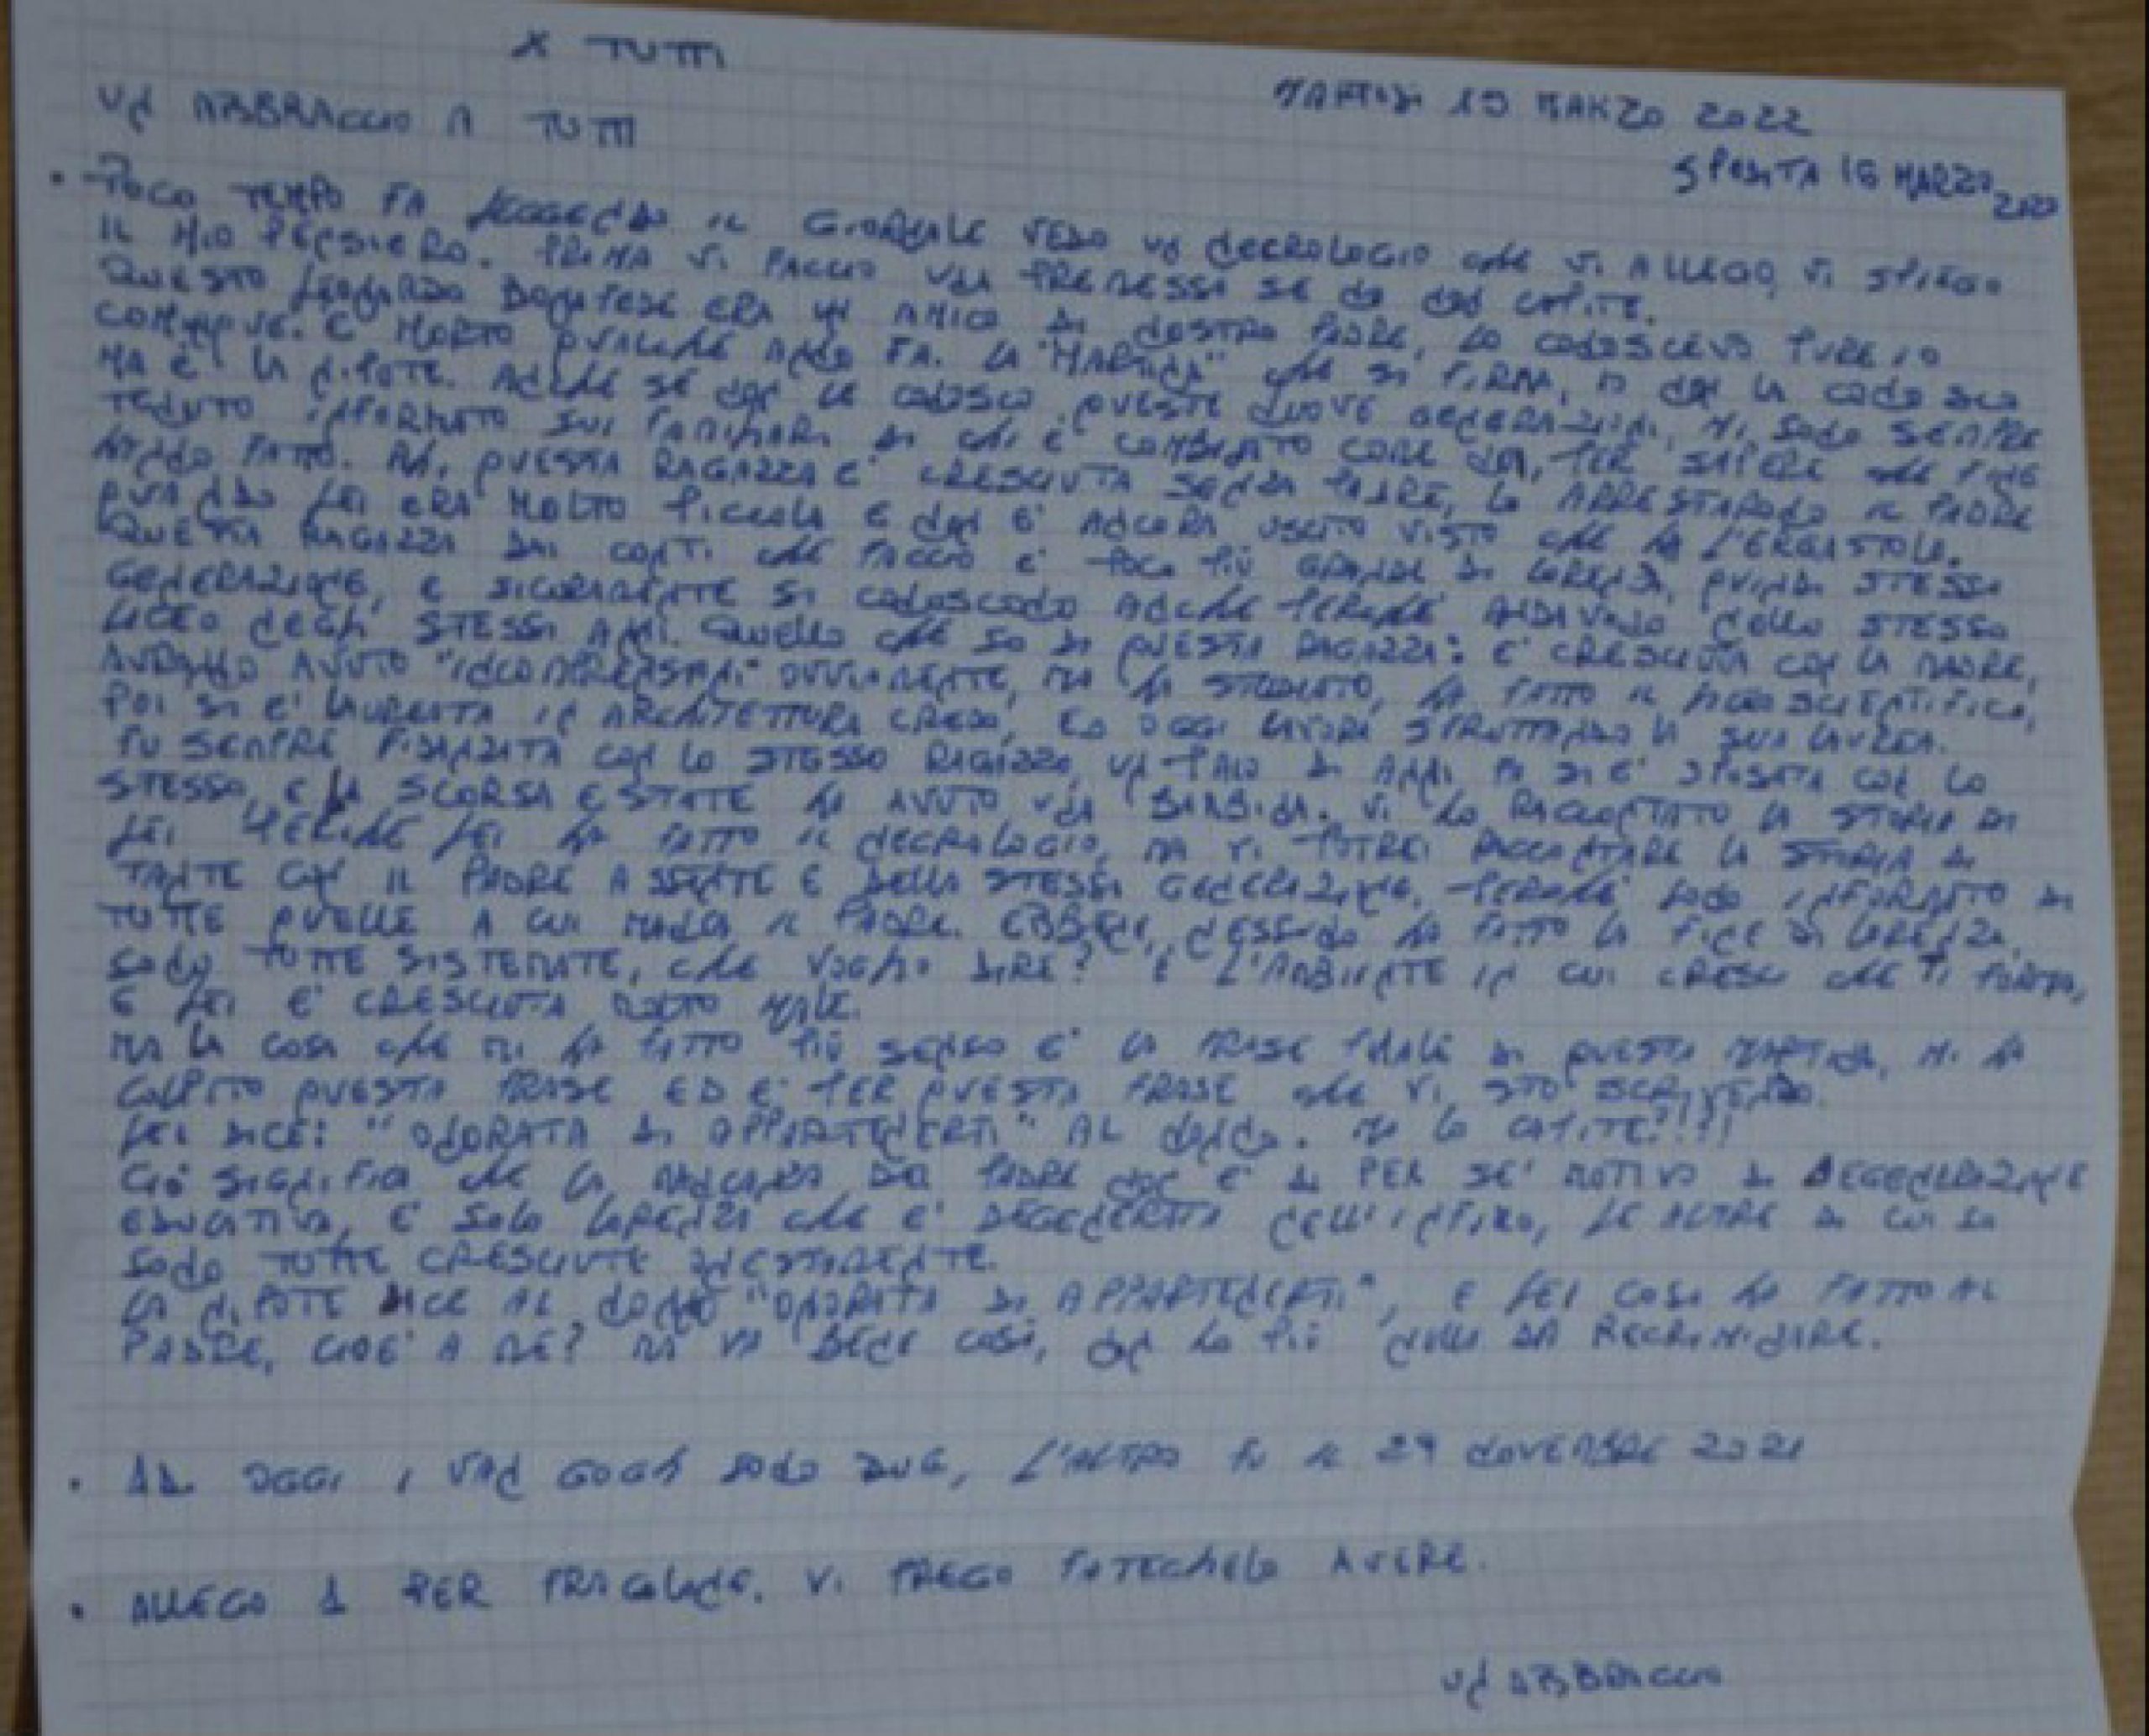 X TUTTI
MARTEDI 15 MARZO 2022
UN ABBRACCIO A TUTTI
SPEDITA 16 MARZO 2022
• POCO TEMPO FA LEGGENDO IL GIORNALE VEDO UN NECROLOGIO CHE VI ALLEGO, VI SPIEGO
IL MIO PENSIERO. PRIMA VI FACCIO UNA PREMESSA SE NO NON CAPITE.
QUESTO LEONARDO BONAFEDE ERA UN AMICO DI NOSTRO PADRE, LO CONOSCEVO PURE IO
COMUNQUE. E' MORTO QUALCHE ANNO FA. LA "MARTINA" CHE SI FIRMA, IO NON LA CONOSCO
MA E' LA NIPOTE. ANCHE SE NON LE CONOSCO QUESTE NUOVE GENERAZIONI, MI SONO SEMPRE
TENUTO INFORMATO SUI FAMILIARI DI CHI E' COMBINATO COME NOI, PER SAPERE CHE FINE
HANNO FATTO. QUESTA RAGAZZA E' CRESCIUTA SENZA PADRE, LO ARRESTARONO IL PADRE
QUANDO LEI ERA MOLTO PICCOLA E NON E' ANCORA USCITO VISTO CHE HA L'ERGASTOLO.
QUESTA RAGAZZA DAI CONTI CHE FACCIO E' POCO PIÙ GRANDE DI LORENZA, QUINDI STESSA
GENERAZIONE, E SICURAMENTE SI CONOSCONO ANCHE PERCHE' ANDAVANO NELLO STESSO
LICEO NEGLI STESSI ANNI. QUELLO CHE SO DI QUESTA RAGAZZA: E' CRESCIUTA CON LA MADRE,
AVRANNO AVUTO "INCOMPRENSIONI" OVVIAMENTE, MA HA STUDIATO, HA FATTO IL LICEO SCIENTIFICO,
POI SI E' LAUREATA IN ARCHITETTURA CREDO, ED OGGI LAVORA SFRUTTANDO LA SUA LAUREA.
FU SEMPRE FIDANZATA CON LO STESSO RAGAZZO, UN PAIO DI ANNI FA SI E' SPOSATA CON LO
STESSO, E LA SCORSA ESTATE HA AVUTO UNA BAMBINA. VI HO RACCONTATO LA STORIA DI
LEI PERCHE' LEI HA FATTO IL NECROLOGIO, MA VI POTREI RACCONTARE LA STORIA DI
TANTE CON IL PADRE ASSENTE E DELLA STESSA GENERAZIONE, PERCHE' SONO INFORMATO DI
TUTTE QUELLE A CUI MANCA IL PADRE. EBBENE, NESSUNA HA FATTO LA FINE DI LORENZA,
SONO TUTTE SISTEMATE, CHE VOGLIO DIRE? E' L'AMBIENTE IN CUI CRESCI CHE TI FORMA,
E LEI E' CRESCIUTA MOLTO MALE.
MA LA COSA CHE MI HA FATTO PIÙ SENSO E' LA FRASE FINALE DI QUESTA MARTINA, MI HA
COLPITO QUESTA FRASE ED E' PER QUESTA FRASE CHE VI STO SCRIVENDO.
LEI DICE: "ONORATA DI APPARTENERTI" AL NONNO. MA LO CAPITE!!!!
CIÒ SIGNIFICA CHE LA MANCANZA DEL PADRE NON E' DI PER SE' MOTIVO DI DEGENERAZIONE
EDUCATIVA, E' SOLO LORENZA CHE E' DEGENERATA NELL'INFIMO, LE ALTRE DI CUI SO
SONO TUTTE CRESCIUTE ONESTAMENTE.
LA NIPOTE DICE AL NONNO "ONORATA DI APPARTENERTI", E LEI COSA HA FATTO AL
PADRE, CIOE' A ME? MA VA BENE COSÌ, NON HO PIÙ NULLA DA RECRIMINARE.
• AD OGGI I VAN GOGH SONO DUE, L'ALTRO FU IL 29 NOVEMBRE 2021
• ALLEGO 1 PER FRAGOLONE. VI PREGO FATECHELO AVERE.
UN ABBRACCIO